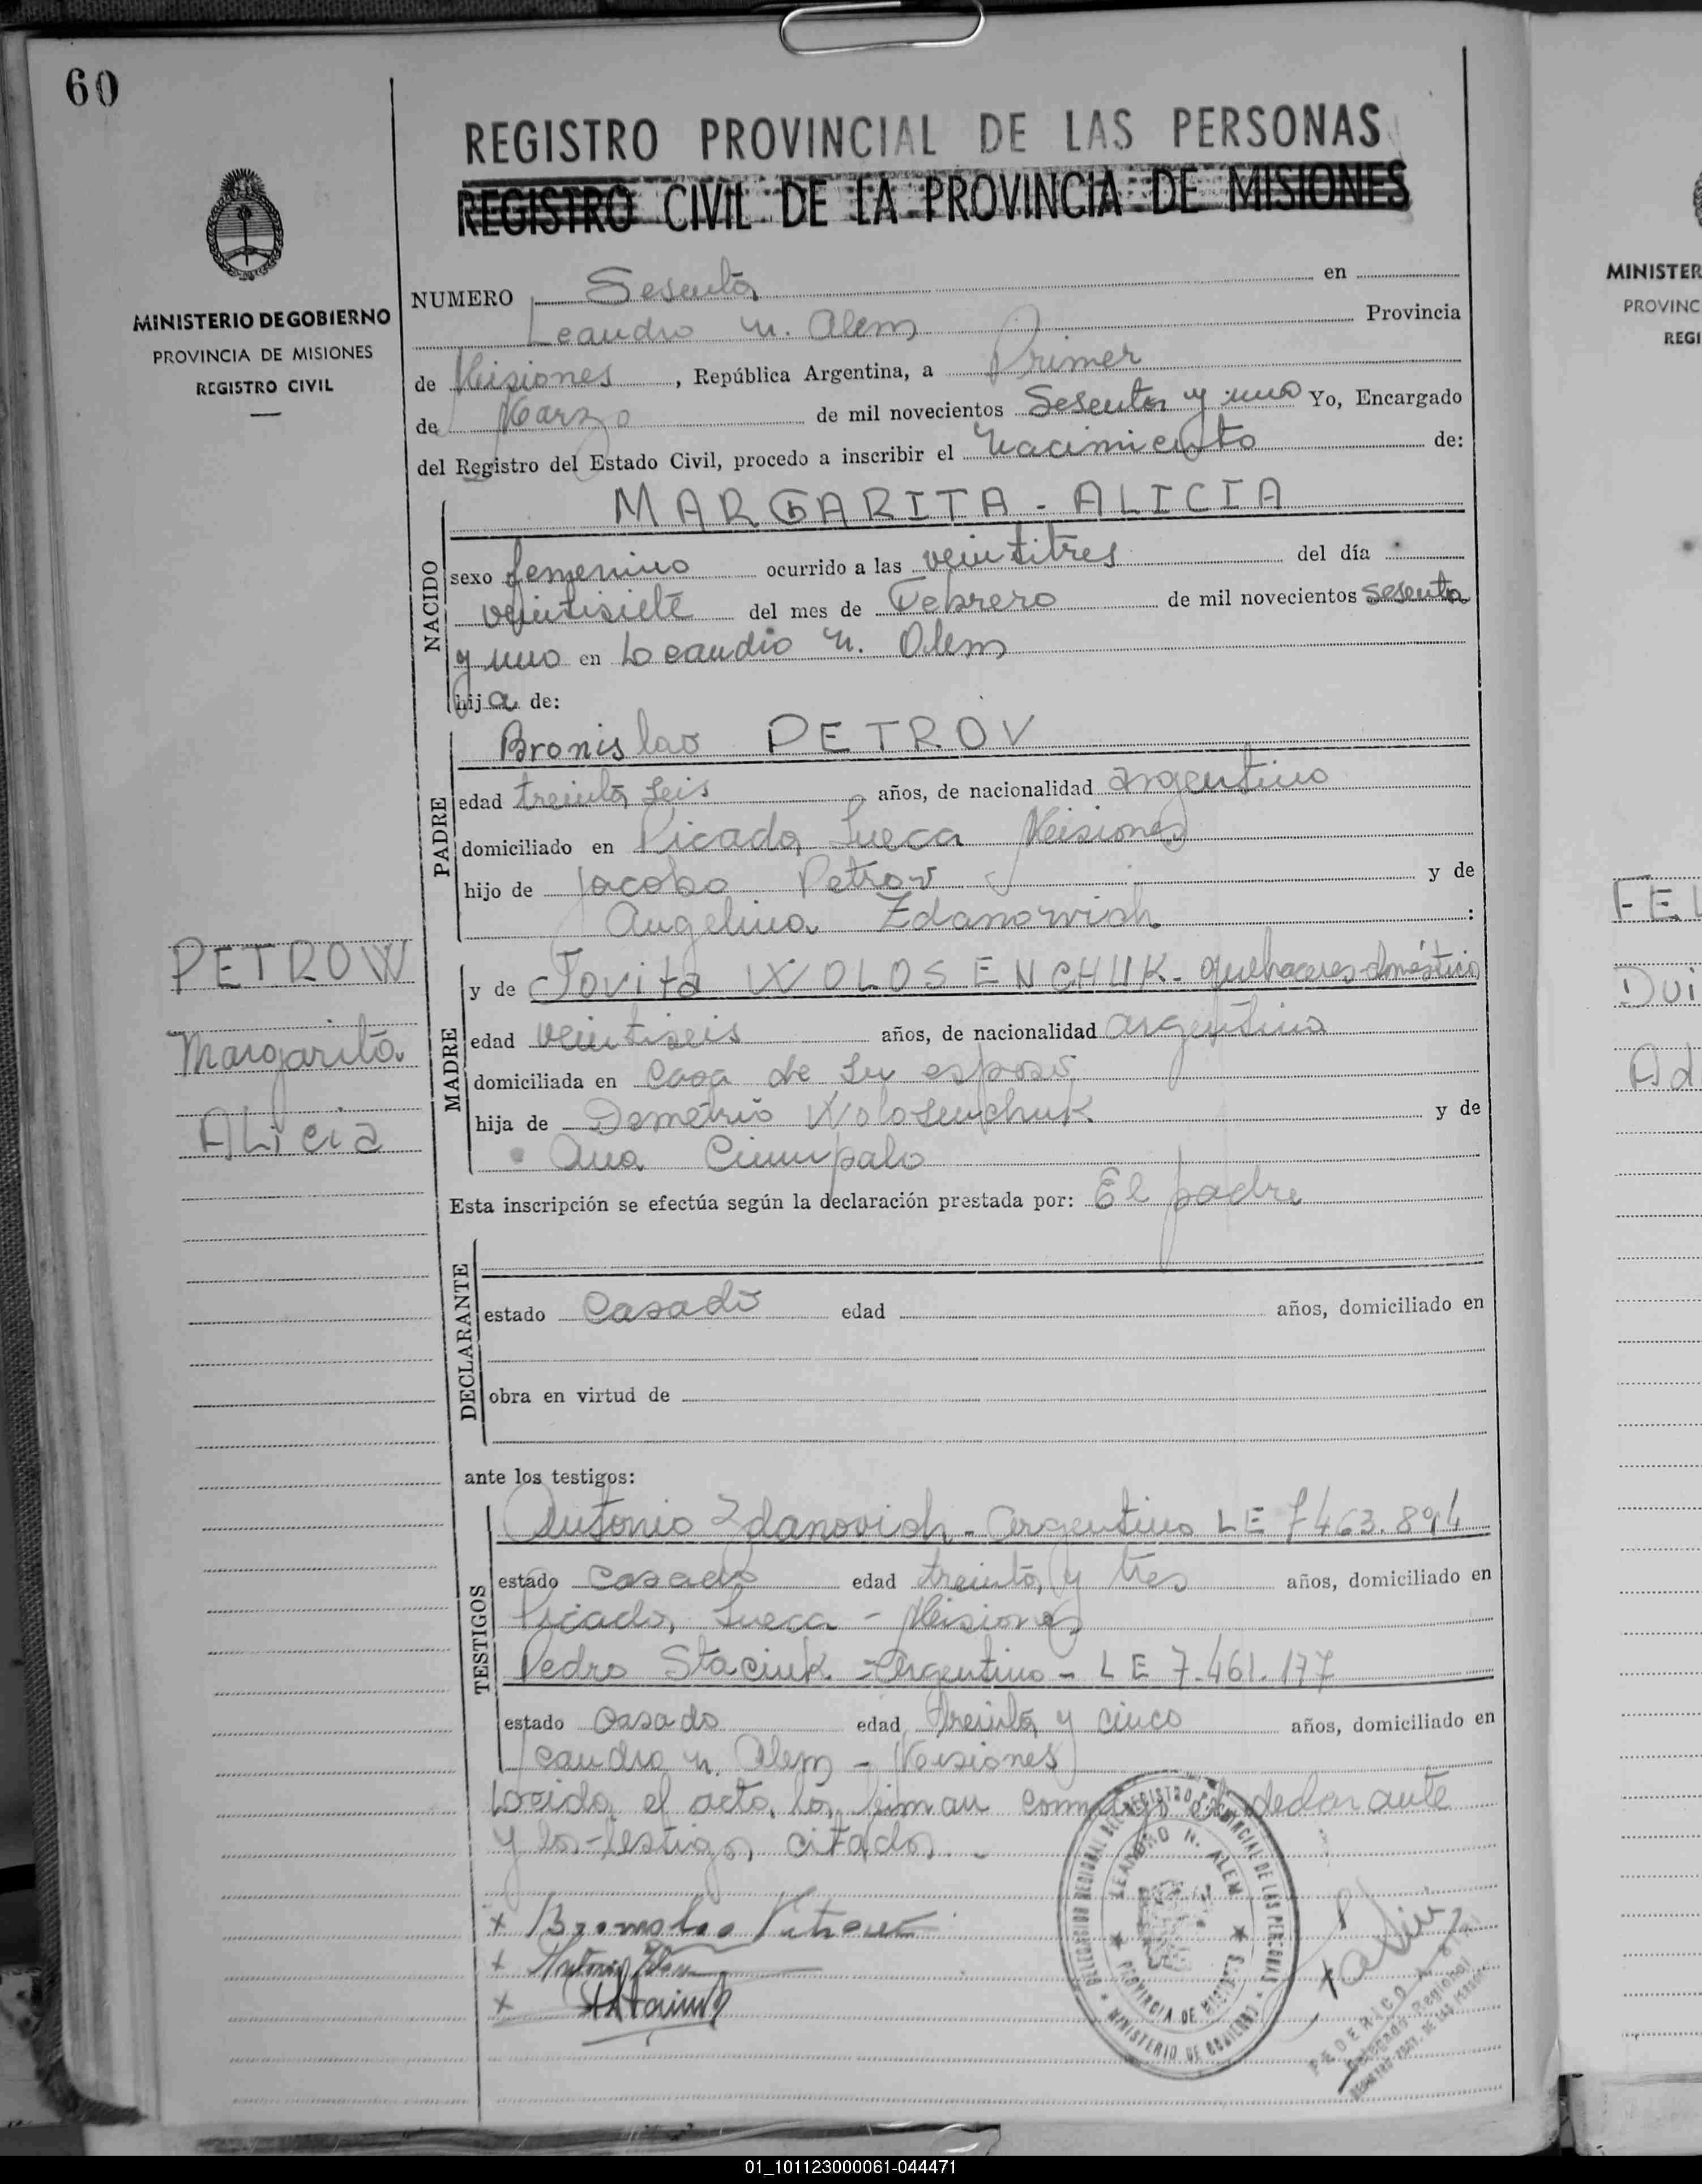 60
REGISTRO PROVINCIAL DE LAS PERSONAS
REGISTRO CIVIL DE LA PROVINCIA DE MISIONES
MINISTERIO DE GOBIERNO
PROVINCIA DE MISIONES
REGISTRO CIVIL
NUMERO Sesenta en
Leandro N. Alem Provincia
de Misiones, República Argentina, a Primer
de Marzo de mil novecientos Sesenta y uno Yo, Encargado
del Registro del Estado Civil, procedo a inscribir el Nacimiento de:
NACIDO
MARGARITA - ALICIA
sexo femenino ocurrido a las veintitres del día
veintisiete del mes de Febrero de mil novecientos sesenta
y uno en Leandro N. Alem
hija de:
PADRE
Bronislao PETROV
edad treinta seis años, de nacionalidad argentino
domiciliado en Picada Sueca Misiones
hijo de Jacobo Petrov y de
Angelina Zdanowich :
PETROW
Margarita
ALicia
MADRE
y de Jovita WOLOSENCHUK - quehaceres domésticos
edad veintiseis años, de nacionalidad argentina
domiciliada en Casa de su esposo
hija de Demetrio Wolosenchuk y de
Ana
Esta inscripción se efectúa según la declaración prestada por: El padre
DECLARANTE
estado Casado edad años, domiciliado en
obra en virtud de
ante los testigos:
TESTIGOS
Antonio Zdanovich - Argentino LE 7463.894
estado casado edad treinta y tres años, domiciliado en
Picada Sueca - Misiones
Pedro Staciuk - Argentino - LE 7.461.177
estado casado edad treinta y cinco años, domiciliado en
Leandro N. Alem - Misiones
Leida el acta, la firman conmigo el declarante
y los testigos citados. -
DELEGACION REGIONAL DEL REGISTRO PROVINCIAL DE LAS PERSONAS
LEANDRO N. ALEM
PROVINCIA DE MISIONES
MINISTERIO DE GOBIERNO
FEDERICO A.
Delegado Regional
MINISTER
PROVINC
REGI
FEL
Dui
Ad
01_101123000061-044471